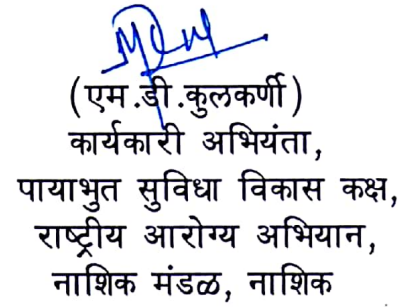 (एम.डी.कुलकर्णी)
कार्यकारी अभियंता,
पायाभुत सुविधा विकास कक्ष,
राष्ट्रीय आरोग्य अभियान,
नाशिक मंडळ, नाशिक